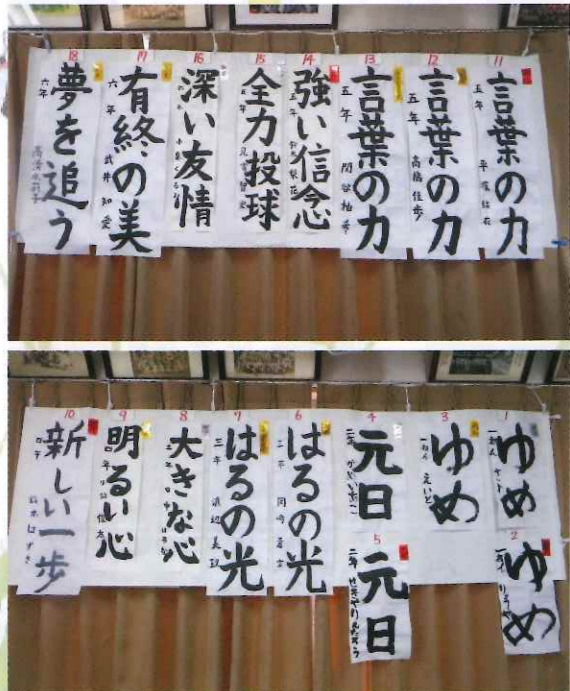 18
夢を追う
六年
17
有終の美
六年
武井知愛
16
深い友情
15
全力投球
14
強い信念
13
言葉の力
五年
関谷柚希
12
言葉の力
五年
高橋佳歩
11
言葉の力
五年
10
新しい一歩
四年
鈴木はづき
9
明るい心
8
大きな心
7
はるの光
三年
渡辺美玖
6
はるの光
三年
4
元日
二年
5
元日
二年
3
ゆめ
一ねん
えいと
1
ゆめ
一ねん
2
ゆめ